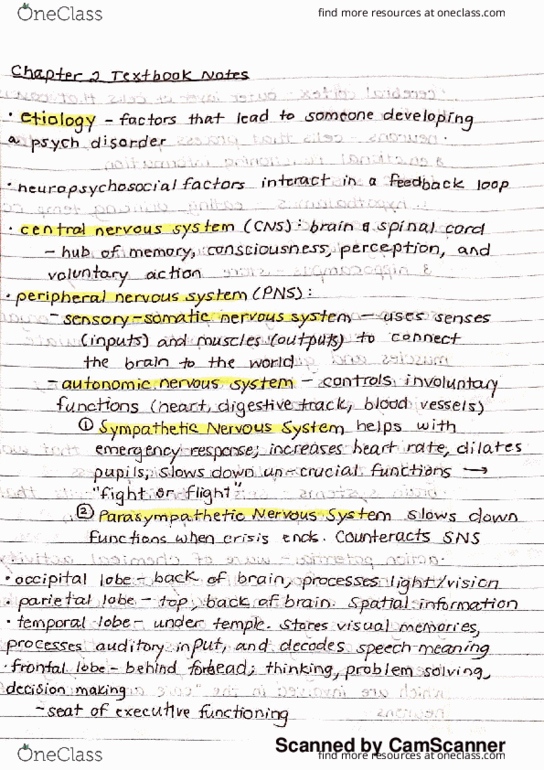 OneClass find more resources at oneclass.com
Chapter 2 Textbook Notes
· etiology - factors that lead to someone developing
a psych disorder
· neuropsychosocial factors interact in a feedback loop
· central nervous system (CNS): brain & spinal cord
- hub of memory, consciousness, perception, and
voluntary action
· peripheral nervous system (PNS):
- sensory-somatic nervous system - uses senses
(inputs) and muscles (outputs) to connect
the brain to the world
- autonomic nervous system - controls involuntary
functions (heart, digestive track, blood vessels)
① Sympathetic Nervous System helps with
emergency response; increases heart rate, dilates
pupils, slows down un-crucial functions →
"fight or flight"
② Parasympathetic Nervous System slows down
functions when crisis ends. Counteracts SNS
· occipital lobe - back of brain, processes light/vision
· parietal lobe - top, back of brain. Spatial information
· temporal lobe - under temple. Stores visual memories,
processes auditory input, and decodes speech meaning
· frontal lobe - behind forhead; thinking, problem solving,
decision making
- seat of executive functioning
Scanned by CamScanner
OneClass find more resources at oneclass.com